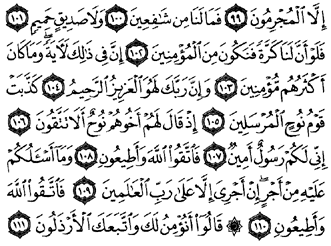 إِلَّا الْمُجْرِمُونَ ﴿٩٩﴾ فَمَا لَنَا مِن شَافِعِينَ ﴿١٠٠﴾ وَلَا صَدِيقٍ حَمِيمٍ ﴿١٠١﴾
فَلَوْ أَنَّ لَنَا كَرَّةً فَنَكُونَ مِنَ الْمُؤْمِنِينَ ﴿١٠٢﴾ إِنَّ فِي ذَٰلِكَ لَآيَةً وَمَا كَانَ
أَكْثَرُهُم مُّؤْمِنِينَ ﴿١٠٣﴾ وَإِنَّ رَبَّكَ لَهُوَ الْعَزِيزُ الرَّحِيمُ ﴿١٠٤﴾ كَذَّبَتْ
قَوْمُ نُوحٍ الْمُرْسَلِينَ ﴿١٠٥﴾ إِذْ قَالَ لَهُمْ أَخُوهُمْ نُوحٌ أَلَا تَتَّقُونَ ﴿١٠٦﴾
إِنِّي لَكُمْ رَسُولٌ أَمِينٌ ﴿١٠٧﴾ فَاتَّقُوا اللَّهَ وَأَطِيعُونِ ﴿١٠٨﴾ وَمَا أَسْأَلُكُمْ
عَلَيْهِ مِنْ أَجْرٍ إِنْ أَجْرِيَ إِلَّا عَلَىٰ رَبِّ الْعَالَمِينَ ﴿١٠٩﴾ فَاتَّقُوا اللَّهَ
وَأَطِيعُونِ ﴿١١٠﴾ ۞ قَالُوا أَنُؤْمِنُ لَكَ وَاتَّبَعَكَ الْأَرْذَلُونَ ﴿١١١﴾